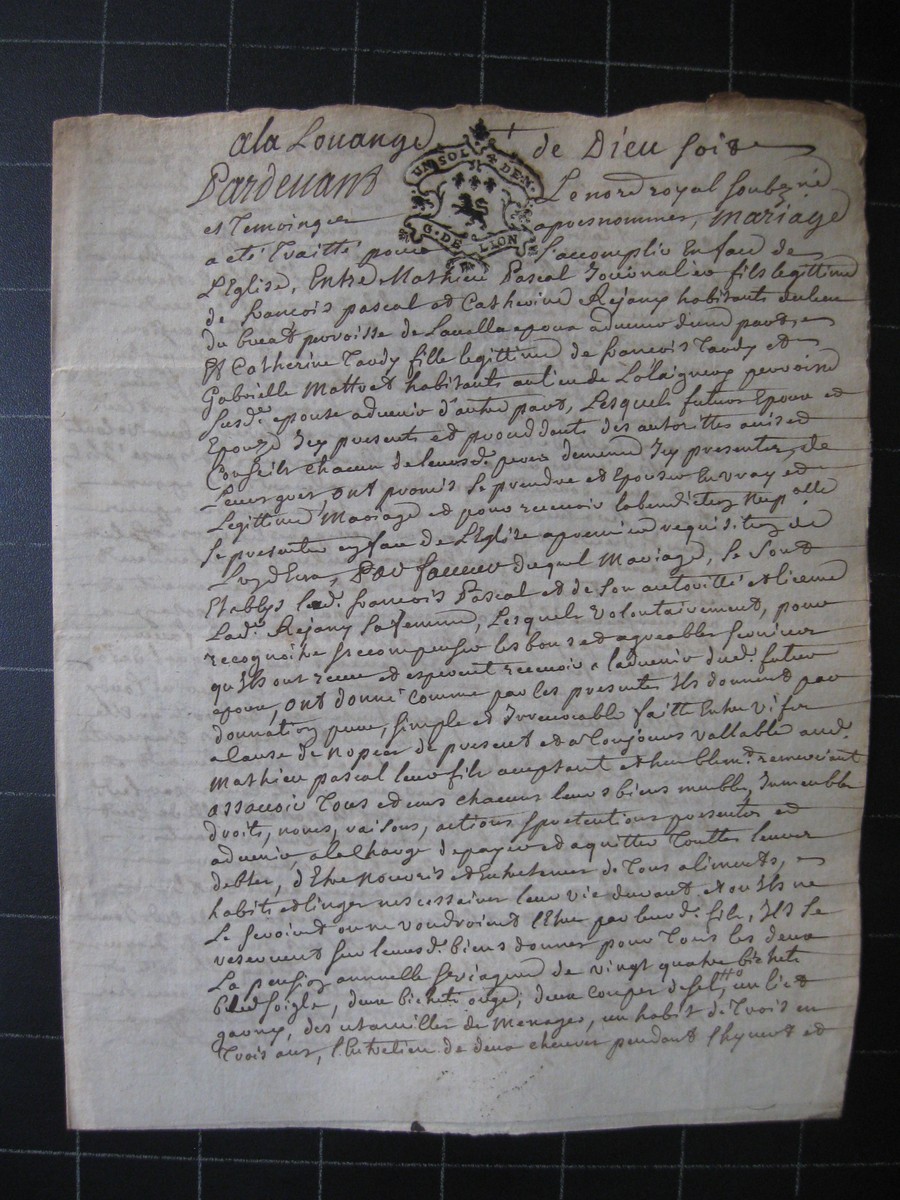 ala Louange de Dieu soit
UN SOL 4 DEN.
G. DE LION
Pardevant Le nore royal soubzné
et Temoingts apresnommes, mariage
a eté Traitté pour s'accomplir En face de
L'Eglise, Entre Mathieu Pascal Journalier fils legittime
de francois pascal et Catherine Rejany habitants au lieu
du Creat parroisse de Lavalla epoux advenir d'une part,
Et Catherine Tardy fille legittime de francois Tardy et
Gabrielle Mattvet habitants au lieu de perroisse
susde. epouse advenir d'autre part, Lesquels futurs Epoux et
Epouze Icy presents et procedants des autorittés avis et
Conseils chacun de leursd. peres dememe Icy presentes, de
Leurs grés, ont promis se prendre et Epouser En vray et
Legittime Mariage et pour recevoir labenediction nup.alle
se presenter en face de L'Eglise apremiere requisition de
L'un d'eux, Par faveur duquel Mariage, se sont
Etablys led. francois Pascal et de son autoritté et licence
Lad. Rejany safemme, Lesquels volontairement, pour
recognoitre & recompenser les bons et agreables services
qu'ils ont receu et esperent recevoir a ladvenir dud. futur
epoux, ont donné comme par les presentes Ils donnent par
donnation pure, simple et Irrevocable faitte Entre vifs
a cause de nopces de present et a Toujours vallable aud.
Mathieu pascal leur fils acceptant et humblemt. remerciant
assavoir Tous et uns chacuns leurs biens meubles, Immeubles
droits, noms, raisons, actions & pretentions presentes et
advenir, alacharge depayer et aquitter Touttes leurs
debtes, d'Etre Nouris et Entretenus de Tous aliments,
habits et linges necessaires leur vie durant et ou Ils ne
Le seroient ou ne voudroient l'Etre par leurd. fils, Ils se
reservent sur leursd. biens donnes pour Tous les deux
La pension annuelle & viagere de vingt quatre bichets
bled soigle, deux bichets orge, deux coupes de sel, un lict
garny, des utancilles de Menages, un habit de Trois en
Trois ans, l'Entretien de deux chevres pendant l'hyvert et